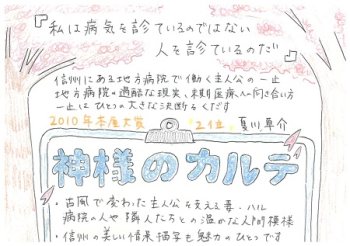 『私は病気を診ているのではない
人を診ているのだ』
信州にある地方病院で働く主人公の一止
地方病院の過酷な現実、末期医療への向き合い方
一止はひとつの大きな決断をくだす
2010年本屋大賞 2位 夏川草介
神様のカルテ
・古風で変わった主人公を支える妻・ハル
病院の人や隣人たちとの温かな人間模様
・信州の美しい情景描写も魅力のひとつです